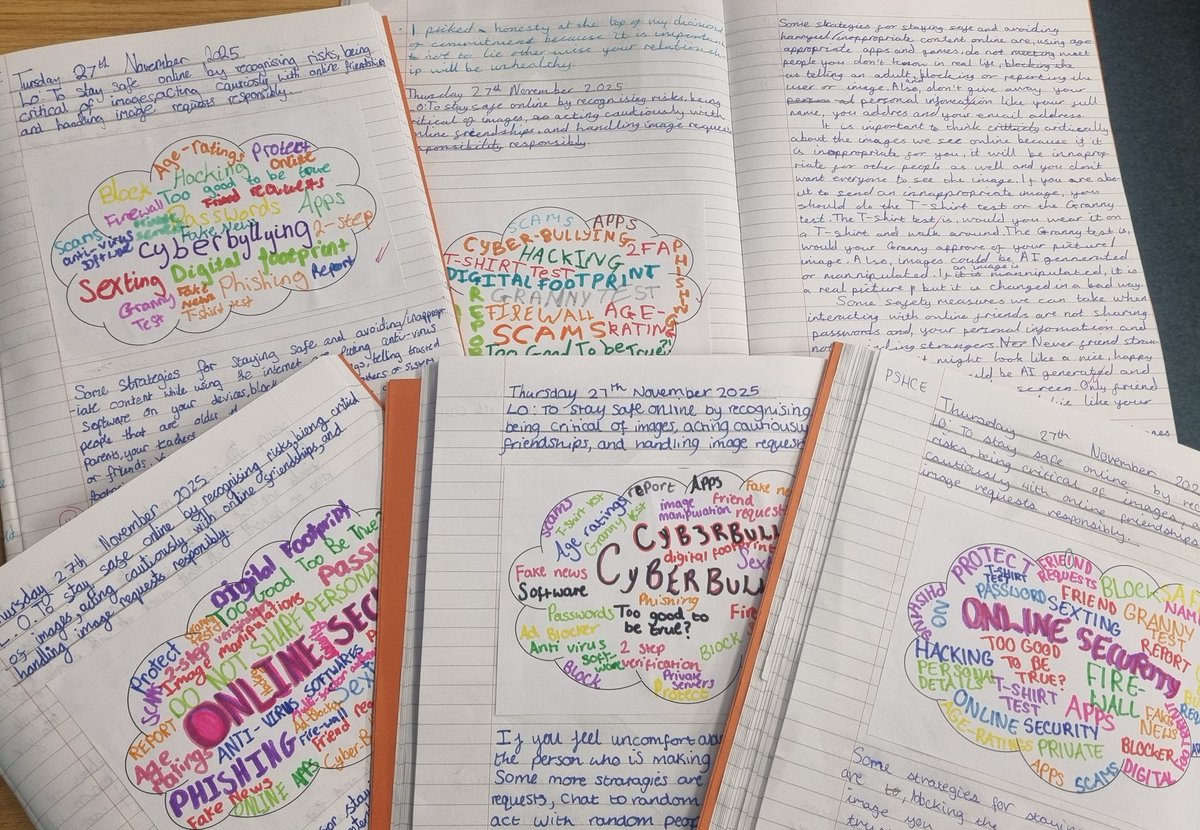 Thursday 27th November 2025
LO: To stay safe online by recognising risks, being
critical of images, acting cautiously with online friendships
and handling image requests responsibly.
Age-ratings
Protect
Hacking
Online
Block
Too good to be true
Friend requests
Firewall
Passwords
Apps
Scams
Fake News
2-step
anti-virus
software
Cyberbyllying
Sexting
Digital footprint
Phishing
Report
Granny
Test
Fake
News
T-shirt test
Some strategies for staying safe and avoiding/inappropr
iate content while using the internet
software on your devices, block
people that are older
Parents, your teachers
or friends.
I picked a honesty at the top of my
commitment because it is important
to not to lie other wise your relationsh
ip will be unhealthy.
Thursday 27th November 2025
LO: To stay safe online by recognising risks, being
critical of images, acting cautiously with
online friendships, and handling image reques
responsibly.
SCAMS
APPS
CYBER-BULLYING
2FA
PHISHING
HACKING
T-SHIRT TEST
DIGITAL FOOTPRINT
GRANNY TEST
FIREWALL
AGE-
RATING
SCAMS
Too Good To be True?!
Some strategies for staying safe and avoiding
harmful/inappropriate content online are, using age-
appropriate apps and games, do not meet
people you don't know in real life, blocking the
us telling an adult, blocking or reporting the
user or image. Also, don't give away your
personal information like your full
name, you address and your email address.
It is important to think critically
about the images we see online because if it
is inappropriate for you, it will be innaprop
riate for other people as well and you don't
want everyone to see the image. If you are abo
ut to send an innappropriate image, you
should do the T-shirt test on the Granny
test. The T-shirt test is, would you wear it on
a T-shirt and walk around. The Granny test is,
would your Granny approve of your picture/
image. Also, images could be AI gennerated
or mannipulated. If an image is mannipulated, it is
a real picture but it is changed in a bad way.
Some safety measures we can take when
interacting with online friends are not sharing
passwords and, your personal infomation and
strangers. Never friend
might look like a nice, happy
be AI generated and
screen. Only friend
like your
Thursday 27th November 2025
L.O: To stay safe online by recognising risks, bieng critical
of images, acting cautiously with online friendships, and
handling image requests responsibly.
Digital Footprint
Too Good Too Be True?
Protect
2-step
Image manipulations
DO NOT SHARE PERSONAL
SCAM
ONLINE SEC
REPORT
ANTI-VIRUS
SOFTWARES
Age
Ratings
PHISHING
Fire-wall
Friend
Fake News
ONLINE APPS
Thursday 27th November 2025
LO: To stay safe online by recognising
being critical of images, acting cautiously
friendships, and handling image request
report
Apps
Fake
Scams
T-shirt test
Age ratings
Granny test
image
manipulation
Friend
request
CYB3RBULL
digital footprint
CyBERBULL
Fake news
Software
Phishing
Passwords
Too good to
be true?
Ad Blocker
Anti virus
soft-
ware
2 step
verification
BLOCK
Block
Private
servers
Protect
If you feel uncomfort
the person who is making
Some more straragies are
requests, Chat to random
act with random peop
PSHCE
Thursday 27th November
LO: To stay safe online by re
risks, being critical of images,
cautiously with online friendships
image requests responsibly.
PROTECT
FRIEND
REQUESTS
BLOCK
T-SHIRT
TEST
PASSWORD
FRIEND
SEXTING
GRANNY
TEST
PHISHING
ONLINE SECURITY
REPORT
HACKING
TOO GOOD
TO BE
TRUE?
PERSONAL
DETAILS
FIRE-
WALL
T-SHIRT
TEST
APPS
FAKE
NEWS
ONLINE SECURITY
AGE-RATINGS
PRIVATE
BLOCKER
APPS
SCAMS
DIGITAL
Some strategies for stayin
are to, blocking the
image you